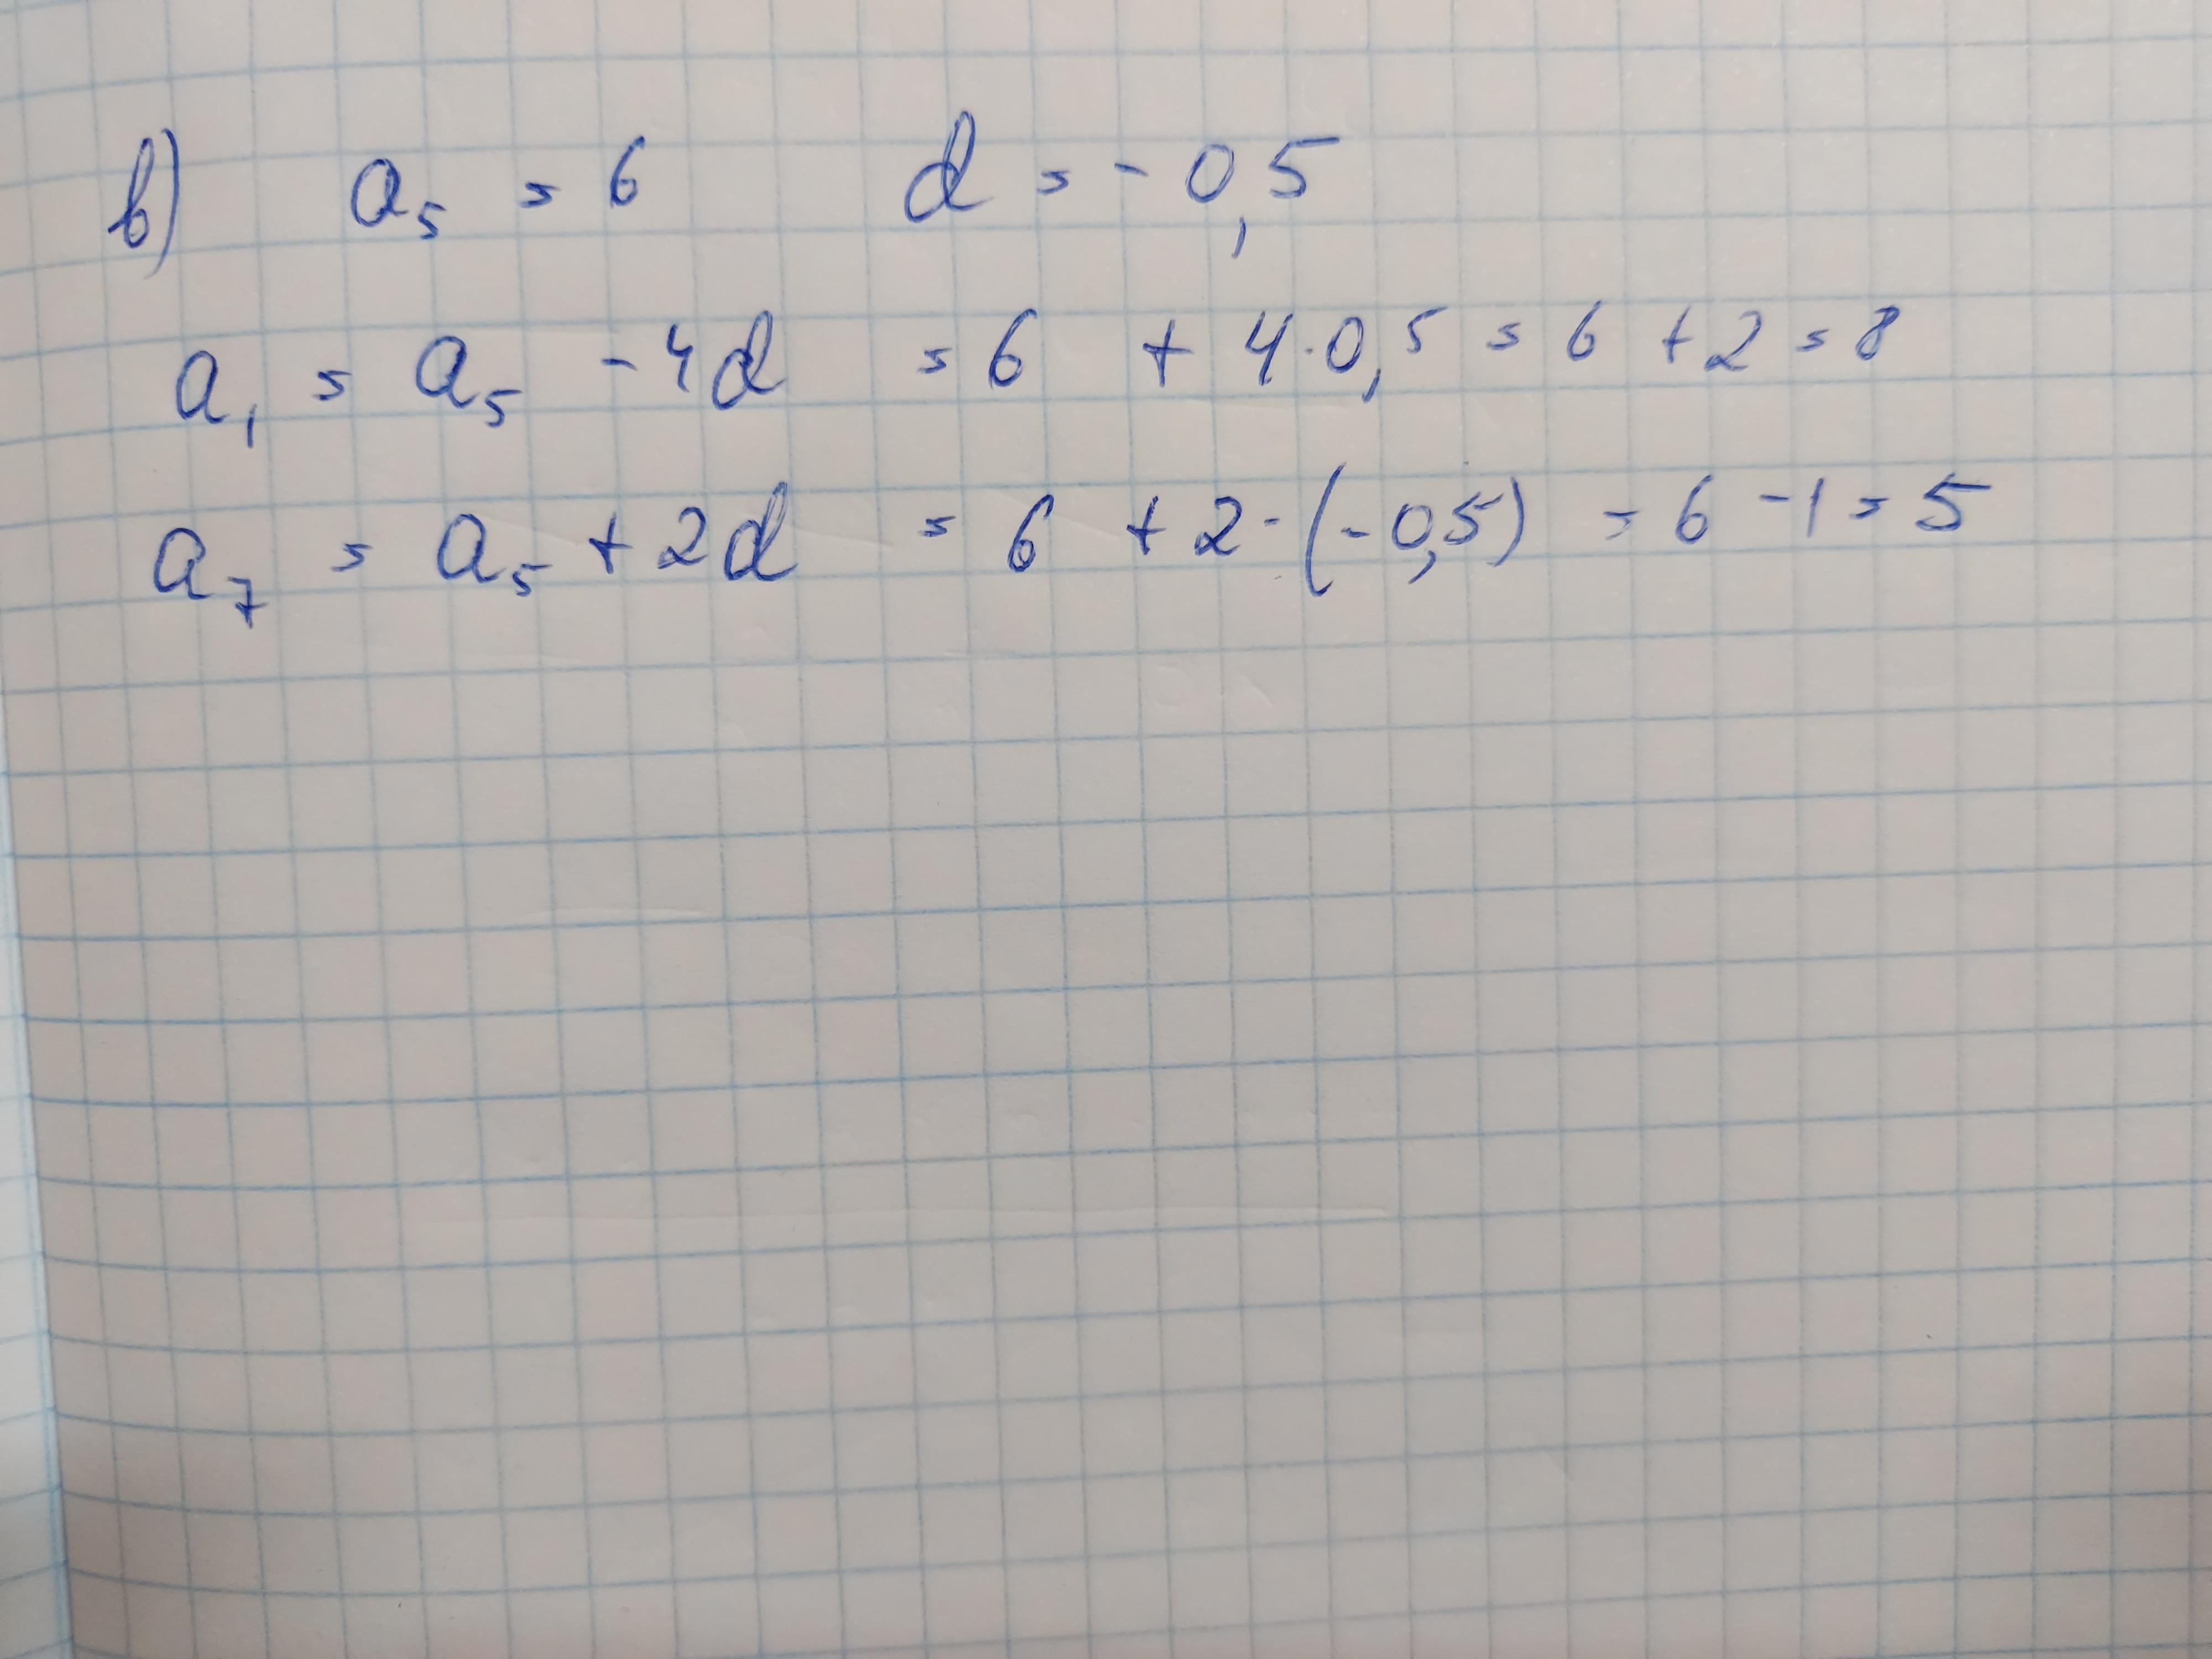 в) a₅ = 6 d = - 0,5
a₁ = a₅ - 4d = 6 + 4·0,5 = 6 + 2 = 8
a₇ = a₅ + 2d = 6 + 2·(-0,5) = 6 - 1 = 5